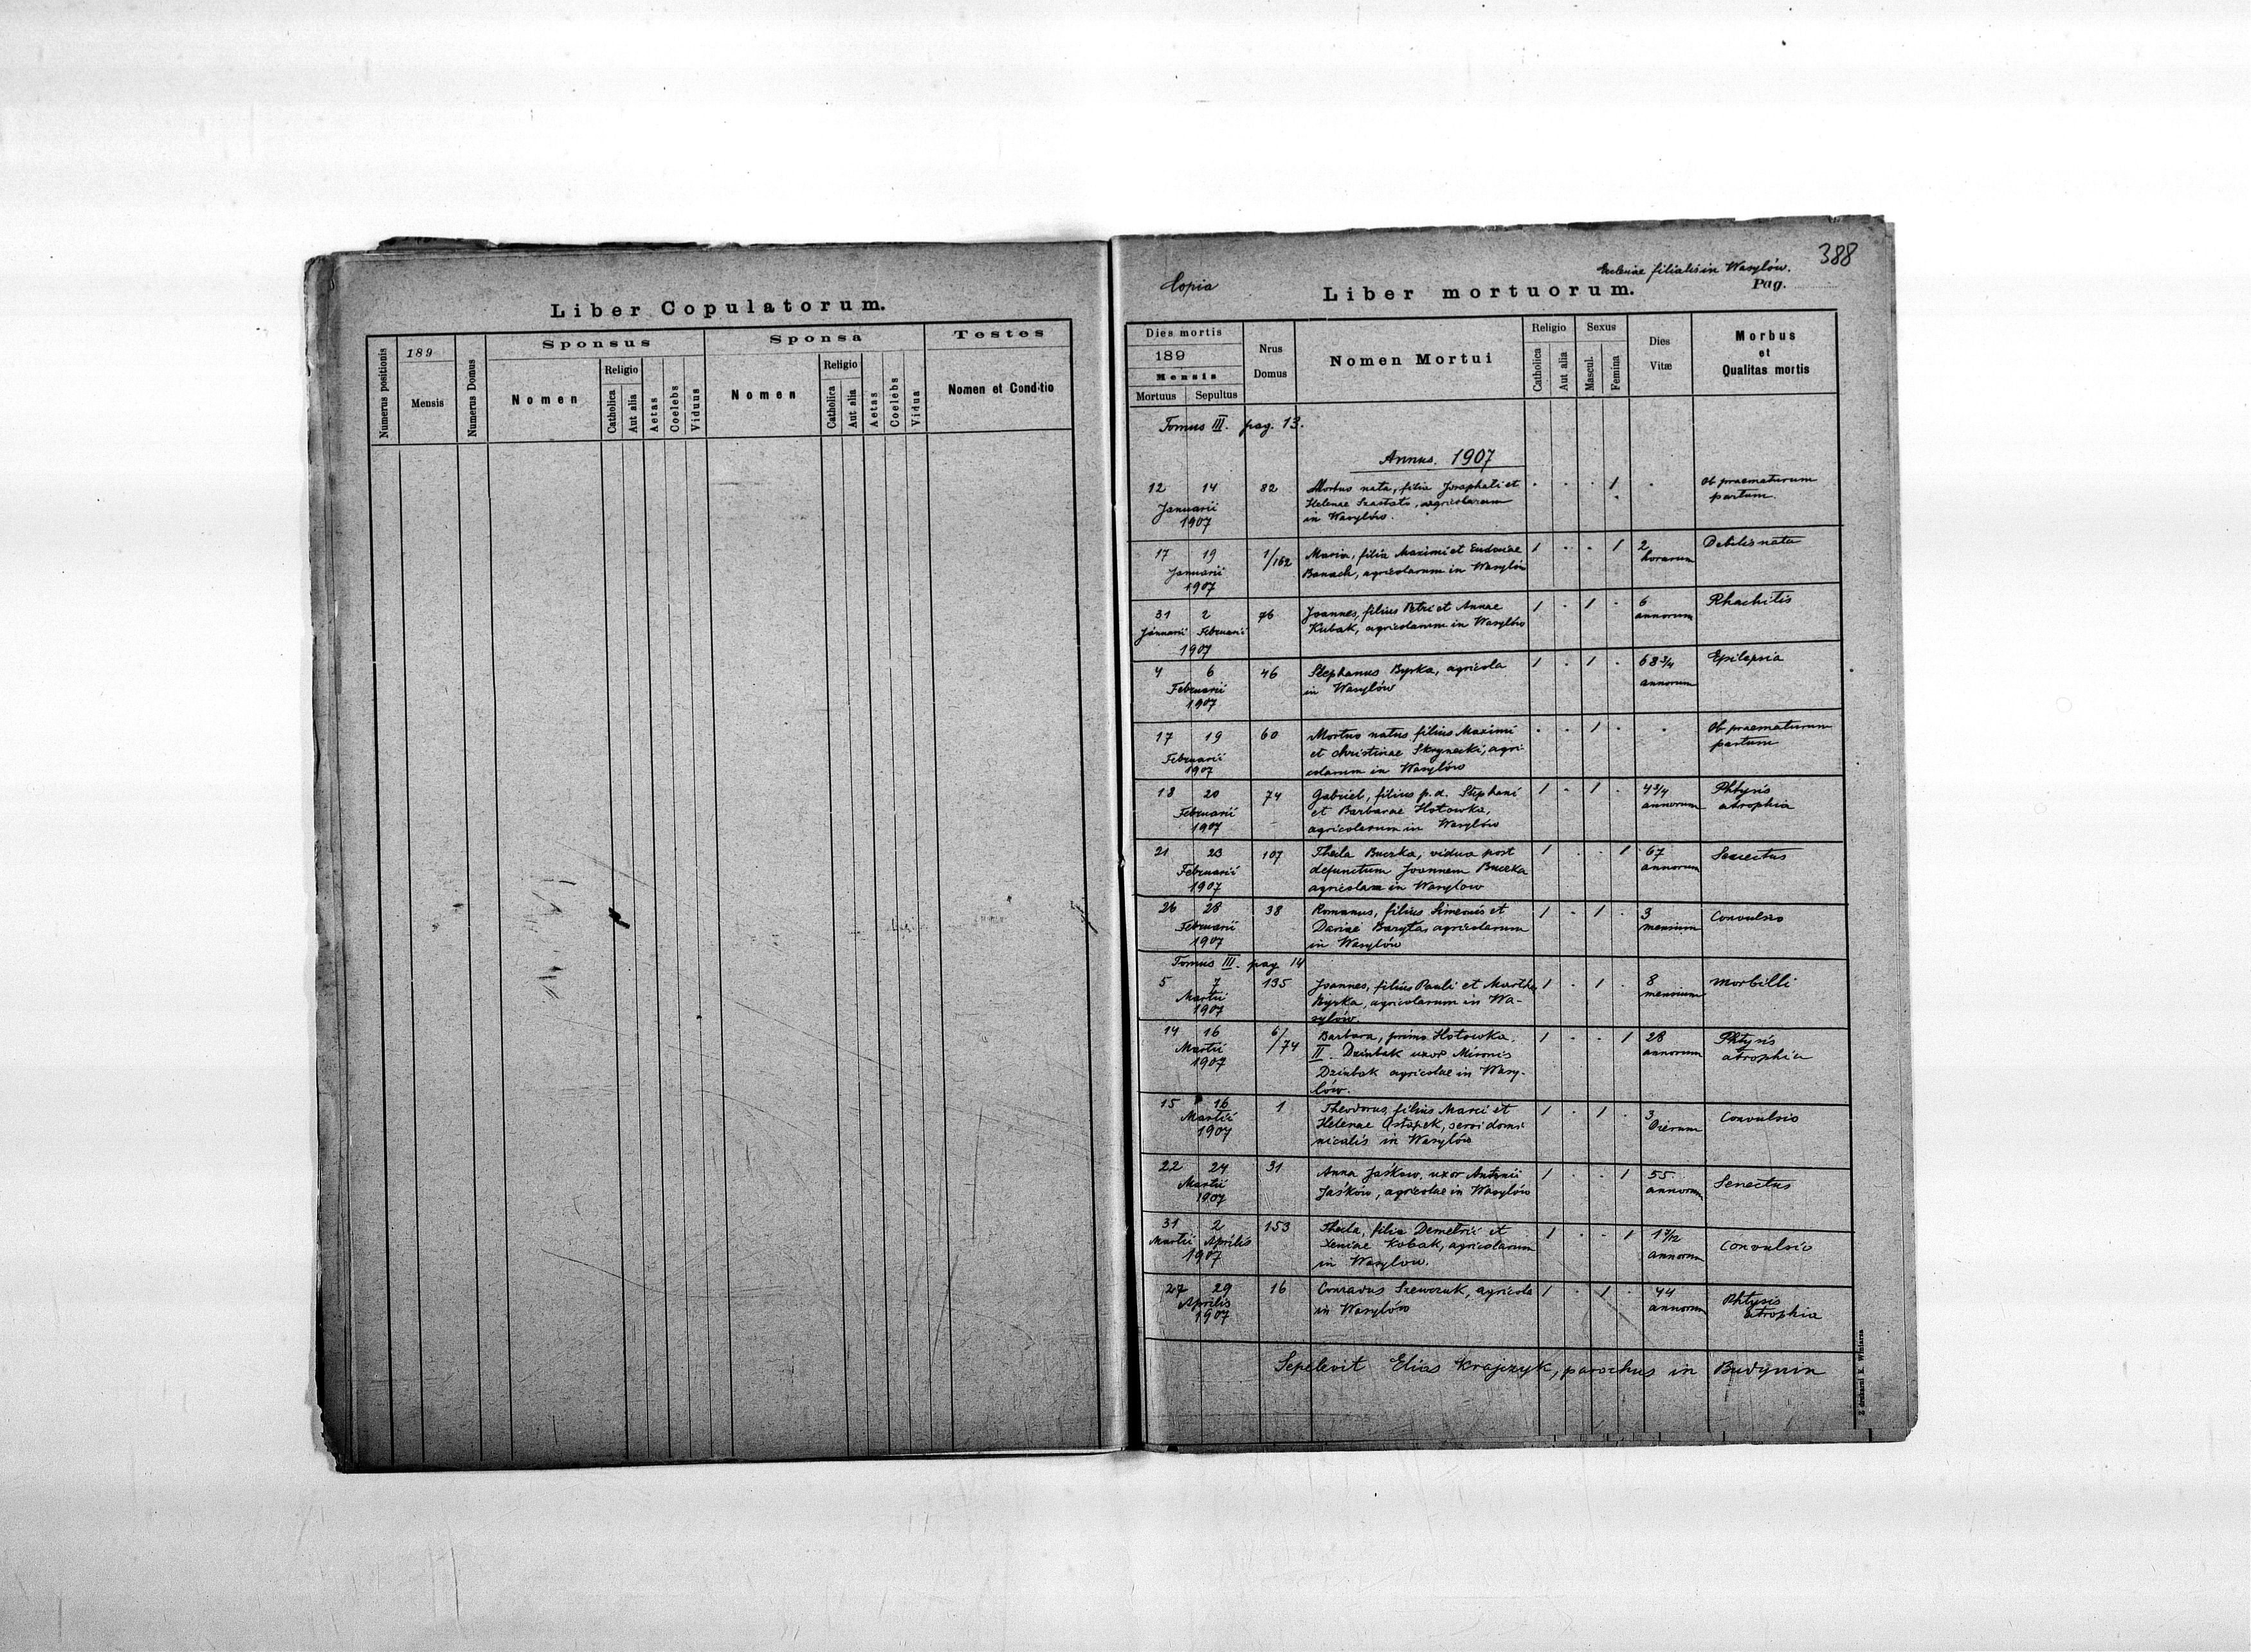 Liber Copulatorum.
Numerus positionis
189
Mensis
Numerus Domus
Sponsus
Nomen
Religio
Catholica
Aut alia
Aetas
Coelebs
Viduus
Sponsa
Nomen
Religio
Catholica
Aut alia
Aetas
Coelebs
Vidua
Testes
Nomen et Conditio
388
Copia
Ecclesiae filialis in Wasylów.
Liber mortuorum.
Pag.
Dies mortis
189
Mensis
Mortuus
Sepultus
Nrus
Domus
Nomen Mortui
Religio
Catholica
Aut alia
Sexus
Mascul.
Femina
Dies
Vitæ
Morbus
et
Qualitas mortis
Tomus III. pag. 13.
Annus. 1907
12 14 82 Mortuo nata, filia Josaphati et . . . 1 . Ob praematurum
Januarii Helenae, agricolarum partum.
1907 in Wasylów.
17 19 1/162 Maria, filia Maximi et Eudoxiae 1 . . 1 2 Debilis nata
Januarii Banach, agricolarum in Wasylów horarum
1907
31 2 76 Joannes, filius Petri et Annae 1 . 1 . 6 Rhachitis
Januarii Februarii Kubak, agricolarum in Wasylów annorum
1907
4 6 46 Stephanus Byrka, agricola 1 . 1 . 68 3/4 Epilepsia
Februarii in Wasylów annorum
1907
17 19 60 Mortuo natus filius Maximi . . 1 . . Ob praematurum
Februarii et Christinae Skrynecki, agri- partum
1907 colarum in Wasylów
18 20 74 Gabriel, filius p.d. Stephani 1 . 1 . 4 3/4 Phtysis
Februarii et Barbarae Hotowka, annorum atrophia
1907 agricolarum in Wasylów
21 23 107 Thecla Buczka, vidua post 1 . . 1 67 Senectus
Februarii defunctum Joannem Buczka annorum
1907 agricolam in Wasylow
26 28 38 Romanus, filius Simeonis et 1 . 1 . 3 Convulsio
Februarii Dariae Baryta, agricolarum mensium
1907 in Wasylów
Tomus III. pag 14
5 7 135 Joannes, filius Pauli et Martha 1 . 1 . 8 Morbilli
Martii Byrka, agricolarum in Wa- mensium
1907 sylów.
14 16 6/74 Barbara, primo Hotowka, 1 . . 1 28 Phtysis
Martii II. Dziubak uxor Mironis annorum atrophia
1907 Dziubak agricolae in Wasy-
lów.
15 16 1 Theodorus, filius Marci et 1 . 1 . 3 Convulsio
Martii Helenae Ostapek, servi domi- Dierum
1907 nicalis in Wasylów
22 24 31 Anna Jaśkow, uxor Antonii 1 . . 1 55 Senectus
Martii Jaśków, agricolae in Wasylów annorum
1907
31 2 153 Thecla, filia Demetrii et 1 . . 1 1 7/12 Convulsio
Martii Aprilis Xeniae Kobak, agricolarum annorum
1907 in Wasylow.
27 29 16 Conradus Szewczuk, agricola 1 . 1 . 44 Phtysis
Aprilis in Wasylów annorum atrophia
1907
Sepelevit Elias Krajczyk, parochus in Budynin
Z drukarni E. Winiarza